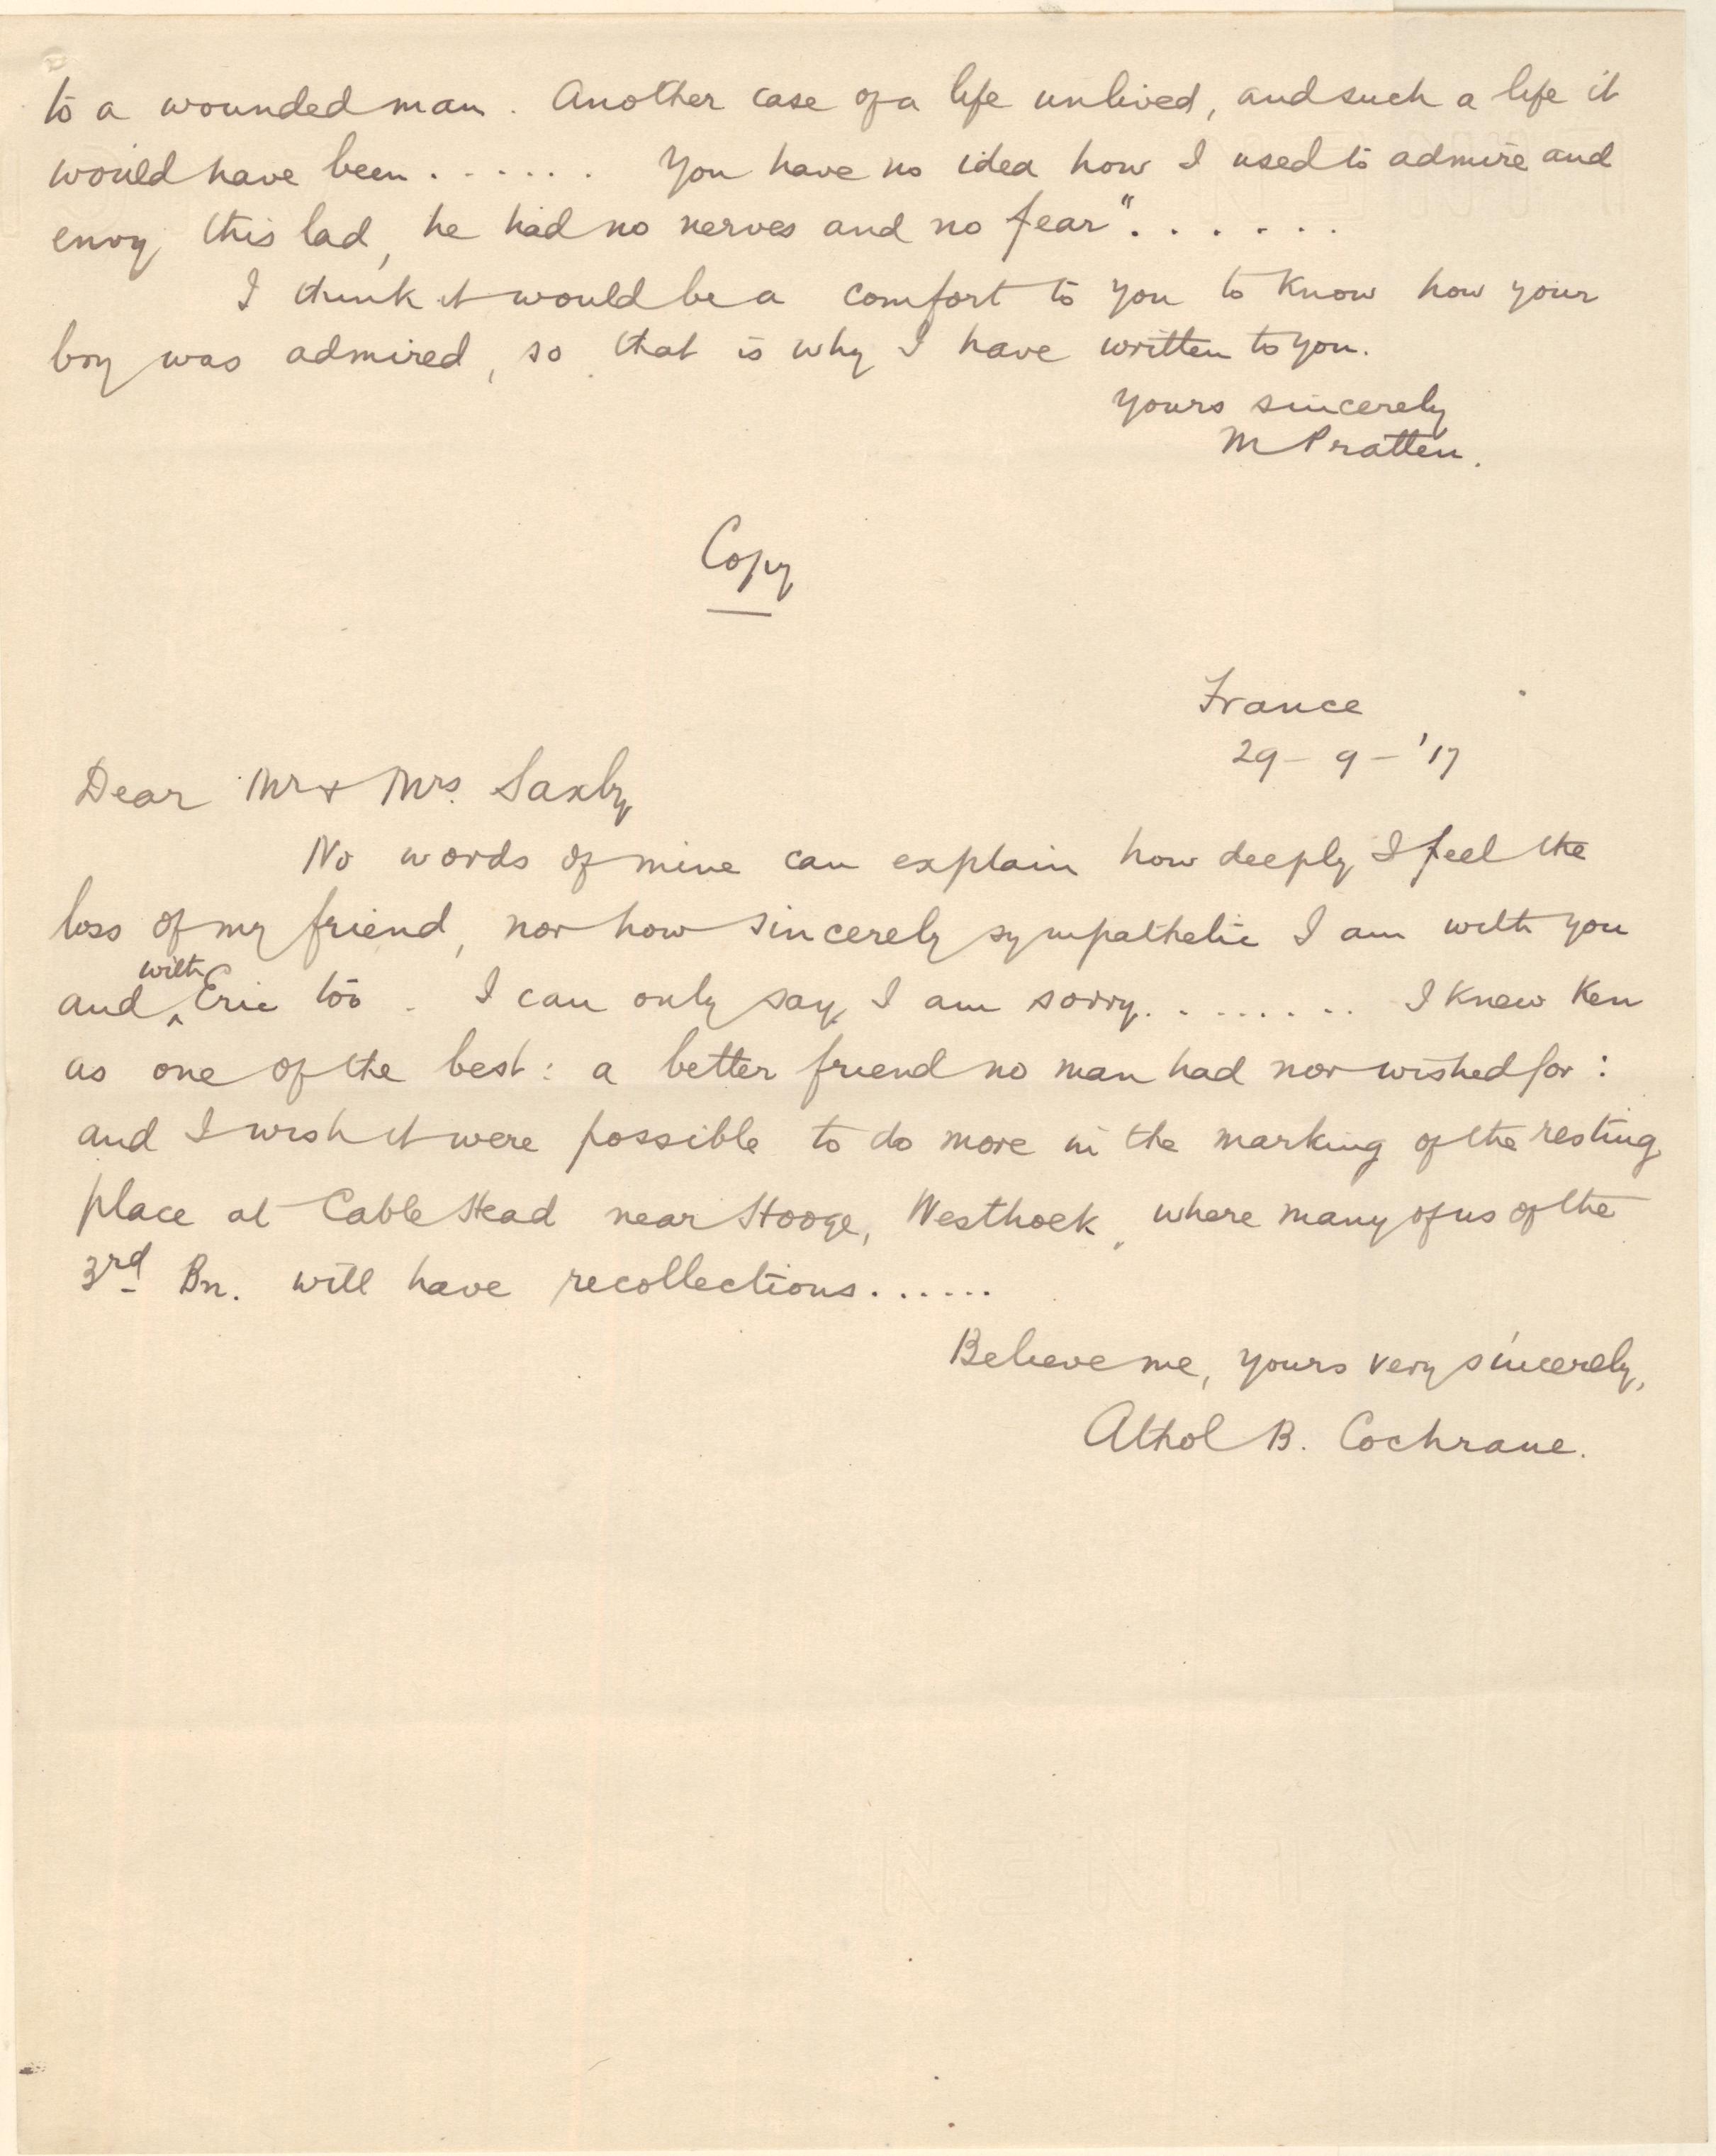 to a wounded man. Another case of a life unlived, and such a life it
would have been . . . . . . You have no idea how I used to admire and
envy this lad, he had no nerves and no fear" . . . . . .
I think it would be a comfort to you to know how your
boy was admired, so that is why I have written to you.
Yours sincerely
M Pratten.
Copy
France
29 - 9 - '17
Dear Mr & Mrs. Saxby
No words of mine can explain how deeply I feel the
loss of my friend, nor how sincerely sympathetic I am with you
and with Eric too. I can only say I am sorry . . . . . . . . I knew Ken
as one of the best: a better friend no man had nor wished for:
and I wish it were possible to do more in the marking of the resting
place at Cable Head near Hooge, Westhoek, where many of us of the
3rd Bn. will have recollections . . . . . .
Believe me, yours very sincerely,
Athol B. Cochrane.